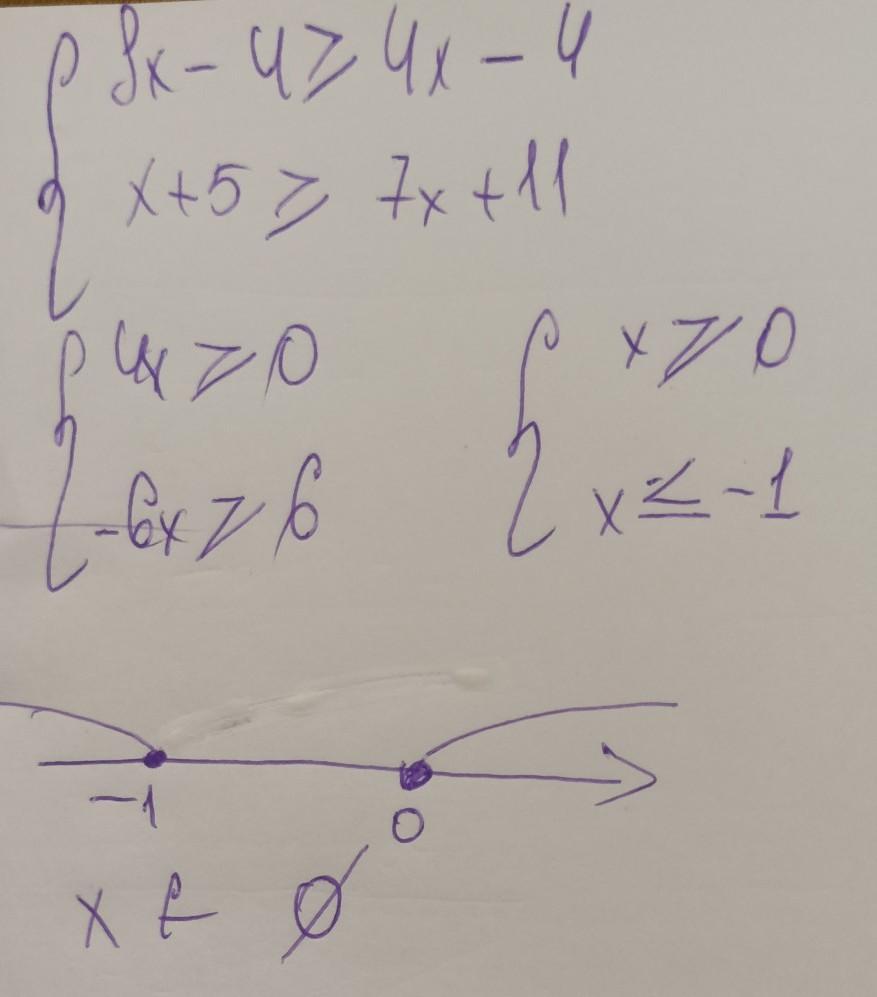 8x - 4 ≥ 4x - 4
x + 5 ≥ 7x + 11
4x ≥ 0
-6x ≥ 6
x ≥ 0
x ≤ -1
-1 0
x ∈ ∅